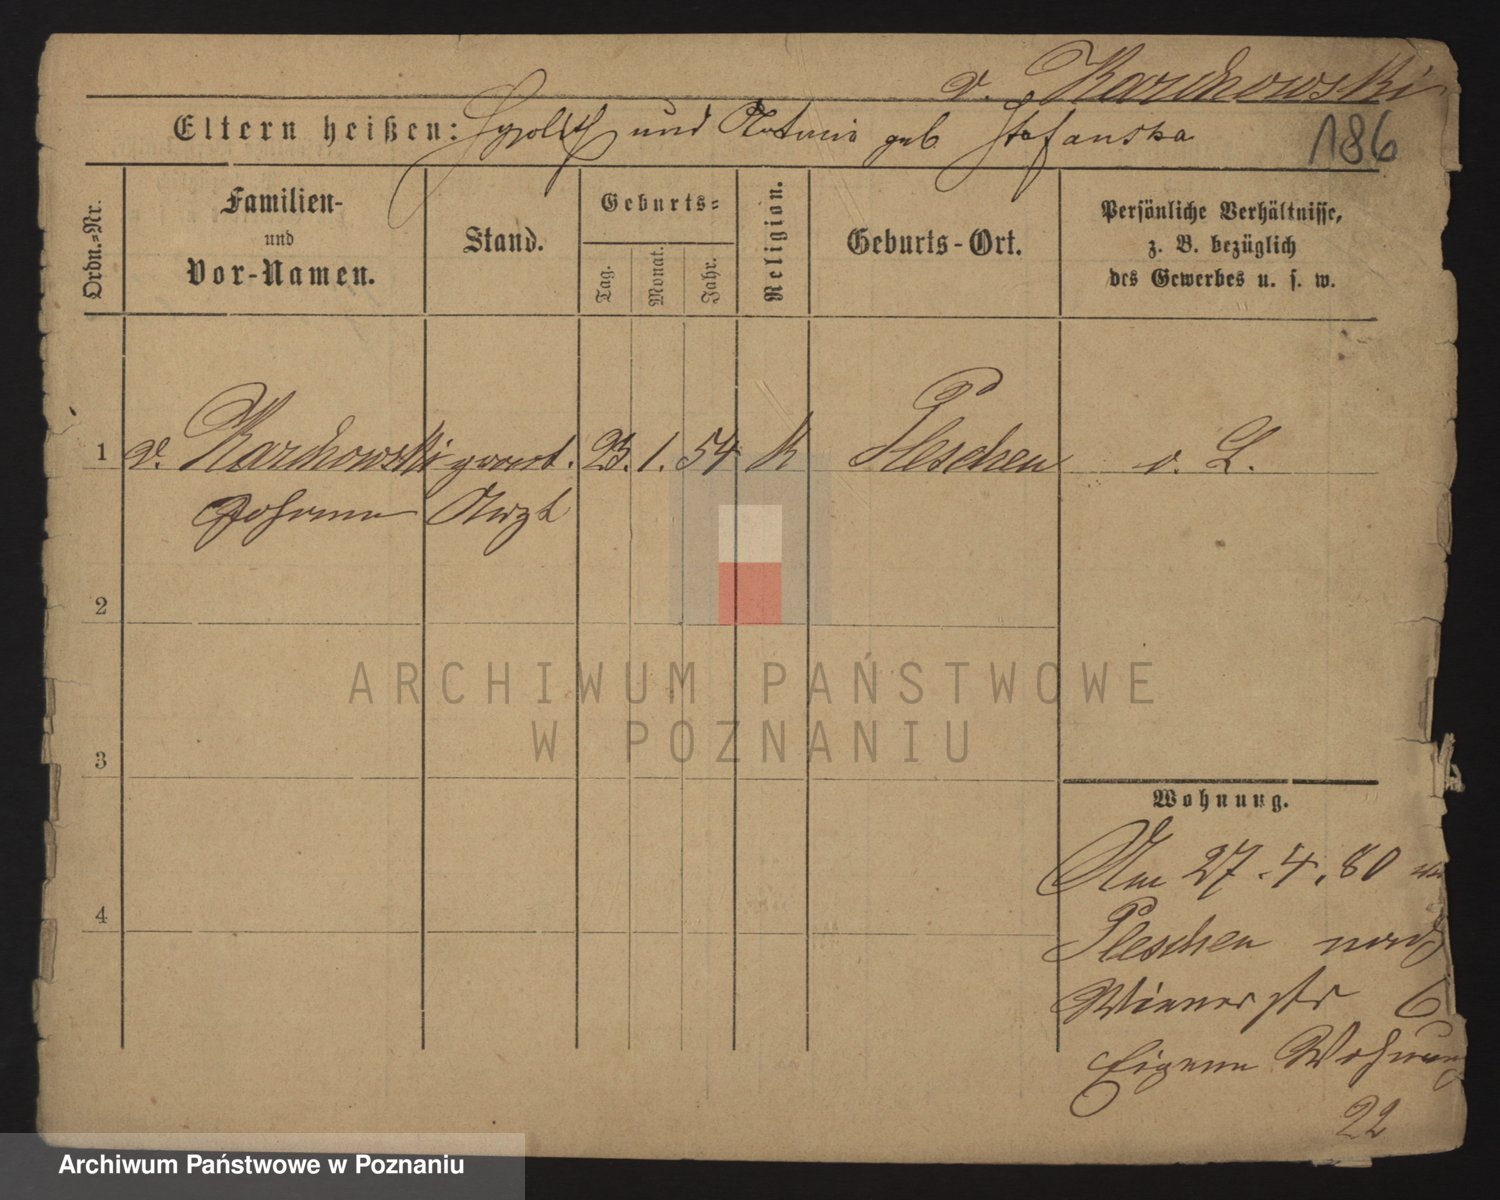 v. Karchowski
Eltern heißen: Hypolith und Antonia geb Stefanska
186
Ordn.-Nr.
Familien-
und
Vor-Namen.
Stand.
Geburts-
Tag.
Monat.
Jahr.
Religion.
Geburts-Ort.
Persönliche Verhältnisse,
z. B. bezüglich
des Gewerbes u. s. w.
1 v. Karchowski pract. 23. 1. 54 K Pleschen v. L.
Johann Arzt
2
3
4
Wohnung.
Am 27.4.80 von
Pleschen nach
Wienerstr 6
Eigene Wohnung
22
ARCHIWUM PAŃSTWOWE
W POZNANIU
Archiwum Państwowe w Poznaniu